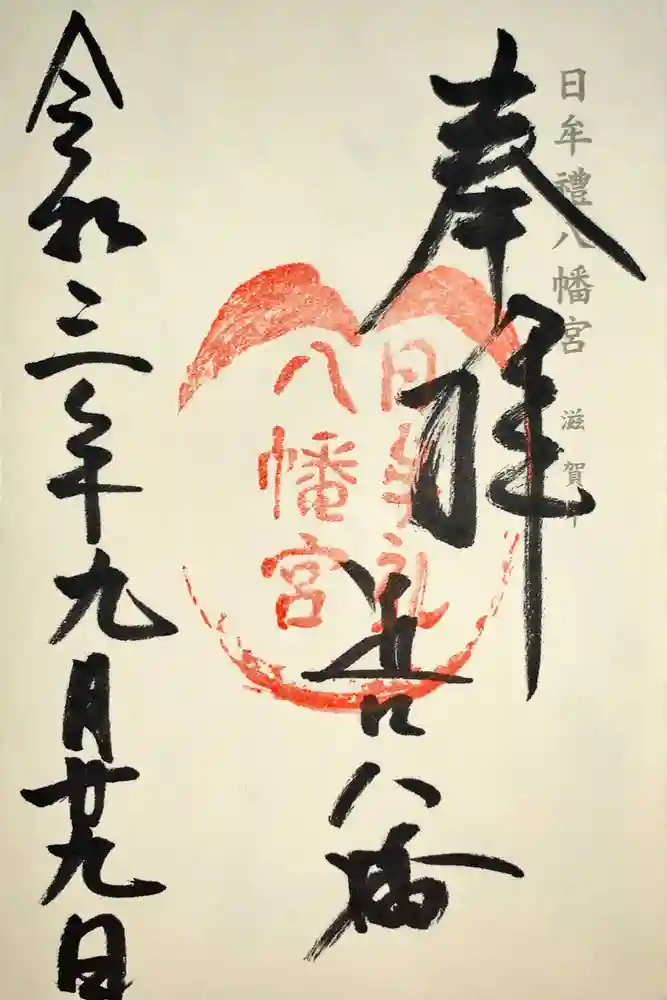 日牟禮八幡宮 滋賀
奉拝
日牟礼
八幡宮
八幡
令和三年九月廿九日